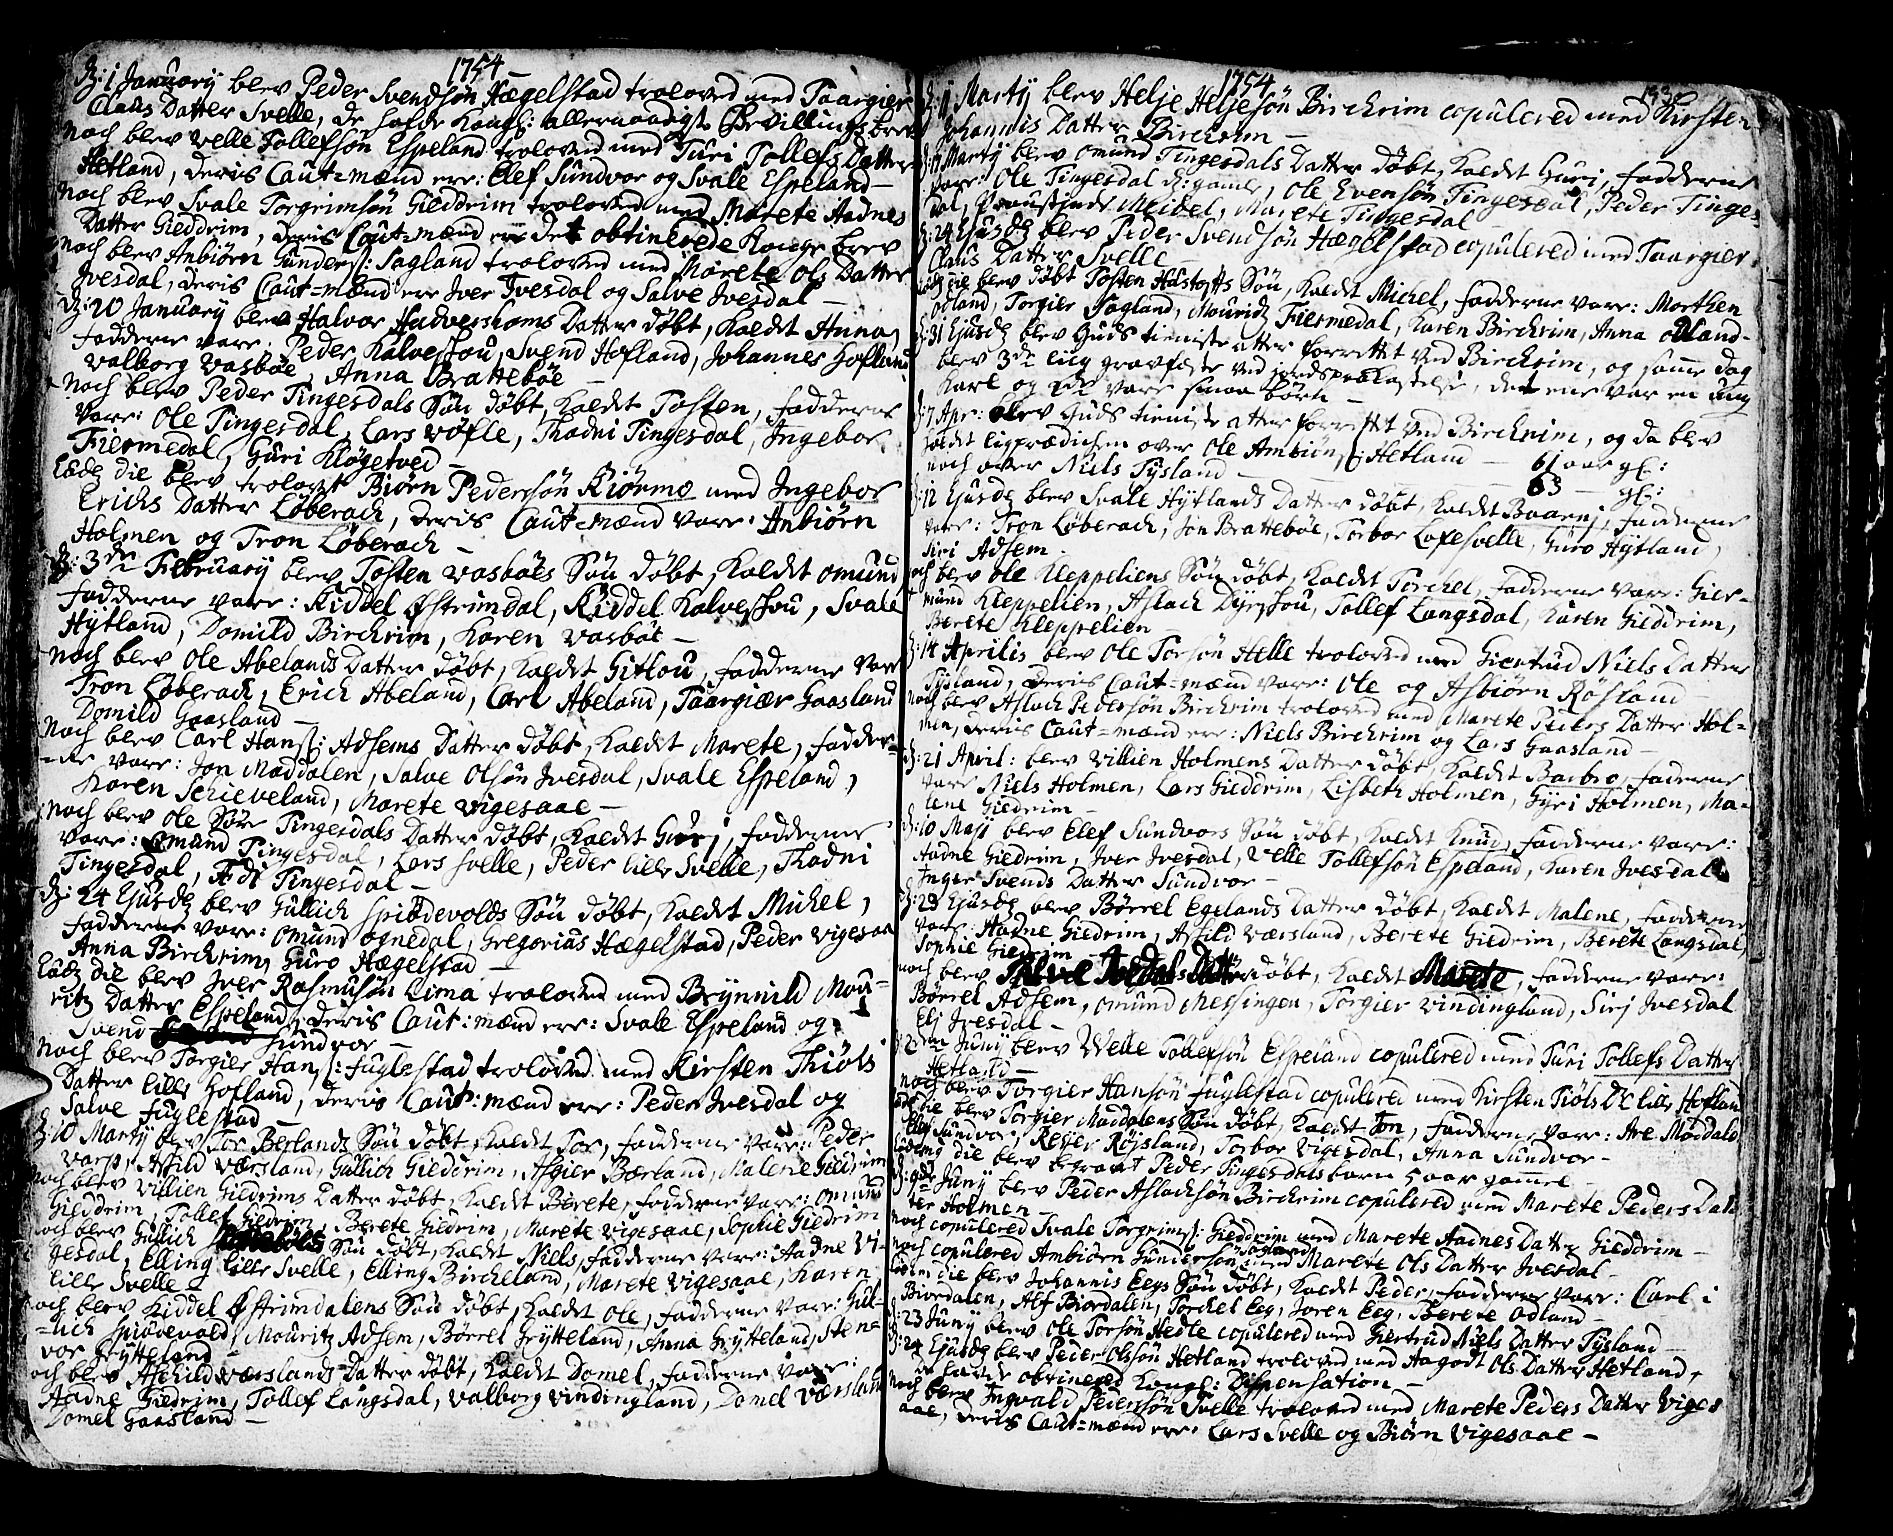 1754
d: 1 Januarij blev Peder Svendsøn Hægelstad troloved med Taargier
Claus Datter Svelle, de hafde Kongl: allernaadigst Bevillings brev
Noch blev Velle Tollefsøn Espeland troloved med Turi Tollefs Datter
Hetland, deris Caut=mænd ere: Elef Sundvor og Svale Espeland —
Noch blev Svale Torgrimsøn Gieddrim troloved med Marete Aadnes
Datter Gieddrim, deris Caut=mænd ere det obtinerede Konge brev
Noch blev Anbiørn Gunders: Sagland troloved med Marete Ols Datter
Ivesdal, deris Caut=mænd ere Iver Ivesdal og Salve Ivesdal —
d: 20 Januarij blev Halvor Hadvershoms Datter døbt, kaldt Anna,
fadderne vare: Peder Kalveshou, Svend Hofland, Johannes Hofland
Valborg Vasbøe, Anna Brattebøe —
Noch blev Peder Tingesdals Søn døbt, kaldt Tosten, fadderne
vare: Ole Tingesdal, Lars Røfle, Thadni Tingesdal, Ingebor
Fiermedal, Guri Kløgetved —
Eodem die blev trolovet Biørn Pedersøn Kiørmo med Ingebor
Erichs Datter Løberach, deris Caut=mænd vare: Anbiørn
Holmen og Tron Løberach —
d: 3de Februarij blev Tosten Vasbøes Søn døbt, kaldt Omund
fadderne vare: Kiddel Østrimdal, Kiddel Kalveshou, Svale
Hÿtland, Domild Birchrim, Karen Vasbøe —
Noch blev Ole Abelands Datter døbt, kaldt Gitlou, fadderne vare
Tron Løberach, Erich Abeland, Carl Abeland, Taargiær Gaasland
Domild Gaasland —
Noch blev Carl Hans: Adsems Datter døbt, kaldt Marete, fadder=
=ne vare: Jon Maddalen, Salve Olsøn Ivesdal, Svale Espeland,
Karen Schieveland, Marete Vigesaae —
Noch blev Ole Søre Tingesdals Datter døbt, kaldt Gurj, fadderne
vare: Omund Tingesdal, Lars Svelle, Peder lille Svelle, Thadni
Tingesdal, Adi Tingesdal —
d: 24 Ejusdem blev Gullich Spiødevolds Søn døbt, kaldt Michel,
fadderne vare: Omund Ognedal, Gregorius Hægelstad, Peder Vigesaa
Anna Birchrim, Guro Hægelstad —
Eodem die blev Iver Rasmusøn Lima troloved med Brÿnnild Mou=
ritz Datter Espeland, deris Caut:mænd ere: Svale Espeland og
Svend Sundvor —
Noch blev Torgier Hans: Fuglestad troloved med Kirsten Thiøls
Datter lille Hofland, deris Caut:mænd ere: Peder Ivesdal og
Salve Fuglestad —
d: 10 Martij blev Tor Berlands Søn døbt, kaldt Tor, fadderne vare Peder
Varp, Asfild Værsland, Gullich Gieddrim, Asgier Bærland, Malene Gieddrim
Noch blev Villien Giedrims Datter døbt, kaldt Berete, fadderne vare: Omund
Gieddrim, Tollef Giedrim, Berete Giedrim, Marete Vigesaae, Sophie Giedrim
Noch blev Gullich Søn døbt, kaldt Niels, fadderne vare: Aadne Vi=
gesdal, Elling lille Svelle, Elling Bircheland, Marete Vigesaae, Karen
lille Svelle —
Noch blev Kiddel Østrimdalens Søn døbt, kaldt Ole, fadderne vare: Gul=
=lich Spiødevold, Mouritz Adsem, Børrel Frÿtteland, Anna Frÿtteland, Ste=
vor Frÿtteland —
Noch blev Aschild Værslands Datter døbt, kaldt Domel, fadderne vare:
Aadne Giedrim, Tollef Langsdal, Valborg Vindingland, Domel Værsland
Domel Gaasland —
1754
133
d: 11 Martij blev Helje Heljesøn Birchrim copulered med Kirsten
Johannis Datter Birchrim —
d: 17 Martij blev Omund Tingesdals Datter døbt, kaldt Guri, fadderne
vare: Ole Tingesdal d: gamle, Ole Evensøn Tingesdal, Peder Tinges=
dal, Meidel, Marete Tingesdal —
d: 24 Ejusdem blev Peder Svendsøn Hægelstad copulered med Taargier
Claus Datter Svelle —
Eodem die blev døbt Tosten Hustofts Søn, kaldt Michel, fadderne vare: Morthen
Ødland, Torgier Sagland, Mouritz Fiermedal, Karen Birchrim, Anna Ødland.
d: 31 Ejusdem blev Guds tieniste atter forrettet ved Birchrim, og samme dag
blev 3de liig gravfæste ved jordspaakastelse, det ene var en ung
Karl og 2de vare smaa børn —
d: 7 Apr: blev Guds tieniste atter forrettet ved Birchrim, og da blev
holdet ligprædichen over Ole Ambiørns: Hetland — 61 aar gl:
noch over Niels Tÿsland — 63 — gl:
d: 12 Ejusdem blev Svale Hÿtlands Datter døbt, kaldt Baarnj, fadderne
vare: Tron Løberach, Jon Brattebøe, Torbor Lofesvelle, Guro Hÿtland,
Siri Adsem.
Noch blev Ole Kleppeliens Søn døbt, kaldt Torchel, fadderne vare: Gier=
mund Kleppelien, Aslach Dÿrshou, Tollef Langsdal, Karen Gieddrim,
Berete Kleppelien —
d: 14 Aprilis blev Ole Torsøn Helle troloved med Giertrud Niels Datter
Tÿsland, deris Caut=mænd vare: Ole og Asbiørn Røsland —
Noch blev Aslach Pedersøn Birchrim troloved med Marete Peders Datter Hol=
men, deris Caut=mænd ere: Niels Birchrim og Lars Gaasland —
d: 21 April: blev Villien Holmens Datter døbt, kaldt Barbro, fadderne
vare Niels Holmen, Lars Gieddrim, Lisbeth Holmen, Gÿri Holmen, Ma=
lene Giedrim —
d: 10 Maji blev Elef Sundvors Søn døbt, kaldt Knud, fadderne vare:
Aadne Giedrim, Iver Ivesdal, Velle Tollefsøn Espeland, Karen Ivesdal
Inger Svends Datter Sundvor —
d: 23 Ejusdem blev Børrel Egelands Datter døbt, kaldt Malene, fadderne
vare: Aadne Giedrim, Asfild Værsland, Berete Giedrim, Berete Langsdal,
Sophie Giedrim
noch blev Salve Ivesdals Datter døbt, kaldt Marete, fadderne vare:
Børrel Adsem, Omund Messingen, Torgier Vindingland, Sirj Ivesdal
Elj Ivesdal —
d: 2den Junij blev Welle Tollefsøn Espeland copulered med Turi Tollefs Datter
Hetland —
Noch blev Torgier Hansøn Fuglestad copulered med Kirsten Tiøls D: lille Hofland
Eodem die blev Torgier Maddalens Søn døbt, kaldt Jon, fadderne vare: Are Maddal
Elef Sundvor, Reier Røjsland, Torbor Vigesdal, Anna Sundvor —
Eodem die blev begravet Peder Tingesdals barn 5 aar gammel —
d: 9de Junij blev Peder Aslachsøn Birchrim copulered med Marete Peders Dat=
ter Holmen —
Noch copulered Svale Torgrims: Gieddrim med Marete Aadnes Datter Gieddrim —
Noch copulered Ambiørn Gundersøn Sagland med Marete Ols Datter Ivesdal —
Eodem die blev Johannis Eegs Søn døbt, kaldt Peder, fadderne vare: Carl i
Biordalen, Alf Biordalen, Torchel Eeg, Soren Eeg, Berete Ødland —
d: 23 Junij blev Ole Torsøn Hedle copulered med Giertrud Niels Datter Tÿsland —
d: 24 Ejusdem blev Peder Olsøn Hetland troloved med Aagodt Ols Datter Hetland,
de hafde obtinered Kongl: Dispensation —
Noch blev Ingvald Pedersøn Svelle troloved med Marete Peders Datter Viges
aae, deris Caut=mænd ere: Lars Svelle og Biørn Vigesaae —